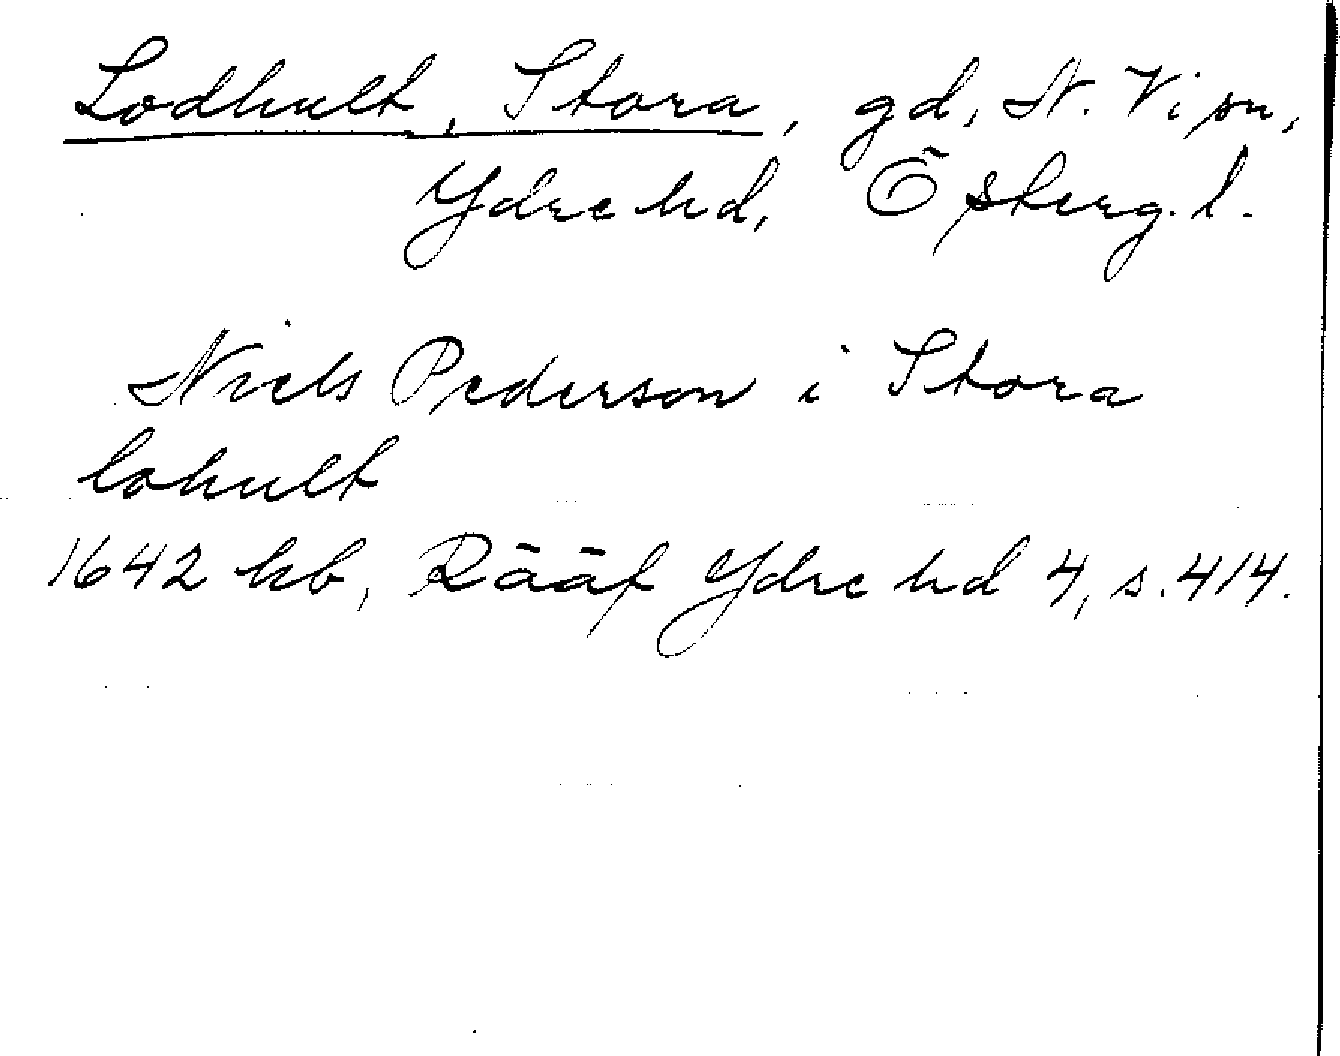 Lodhult, Stora, gd, N. Vi sn,
Ydre hd, Östergl.
Niels Pederson i Stora
lohult
1642 kb, Rääf Ydre hd 4, s. 414.